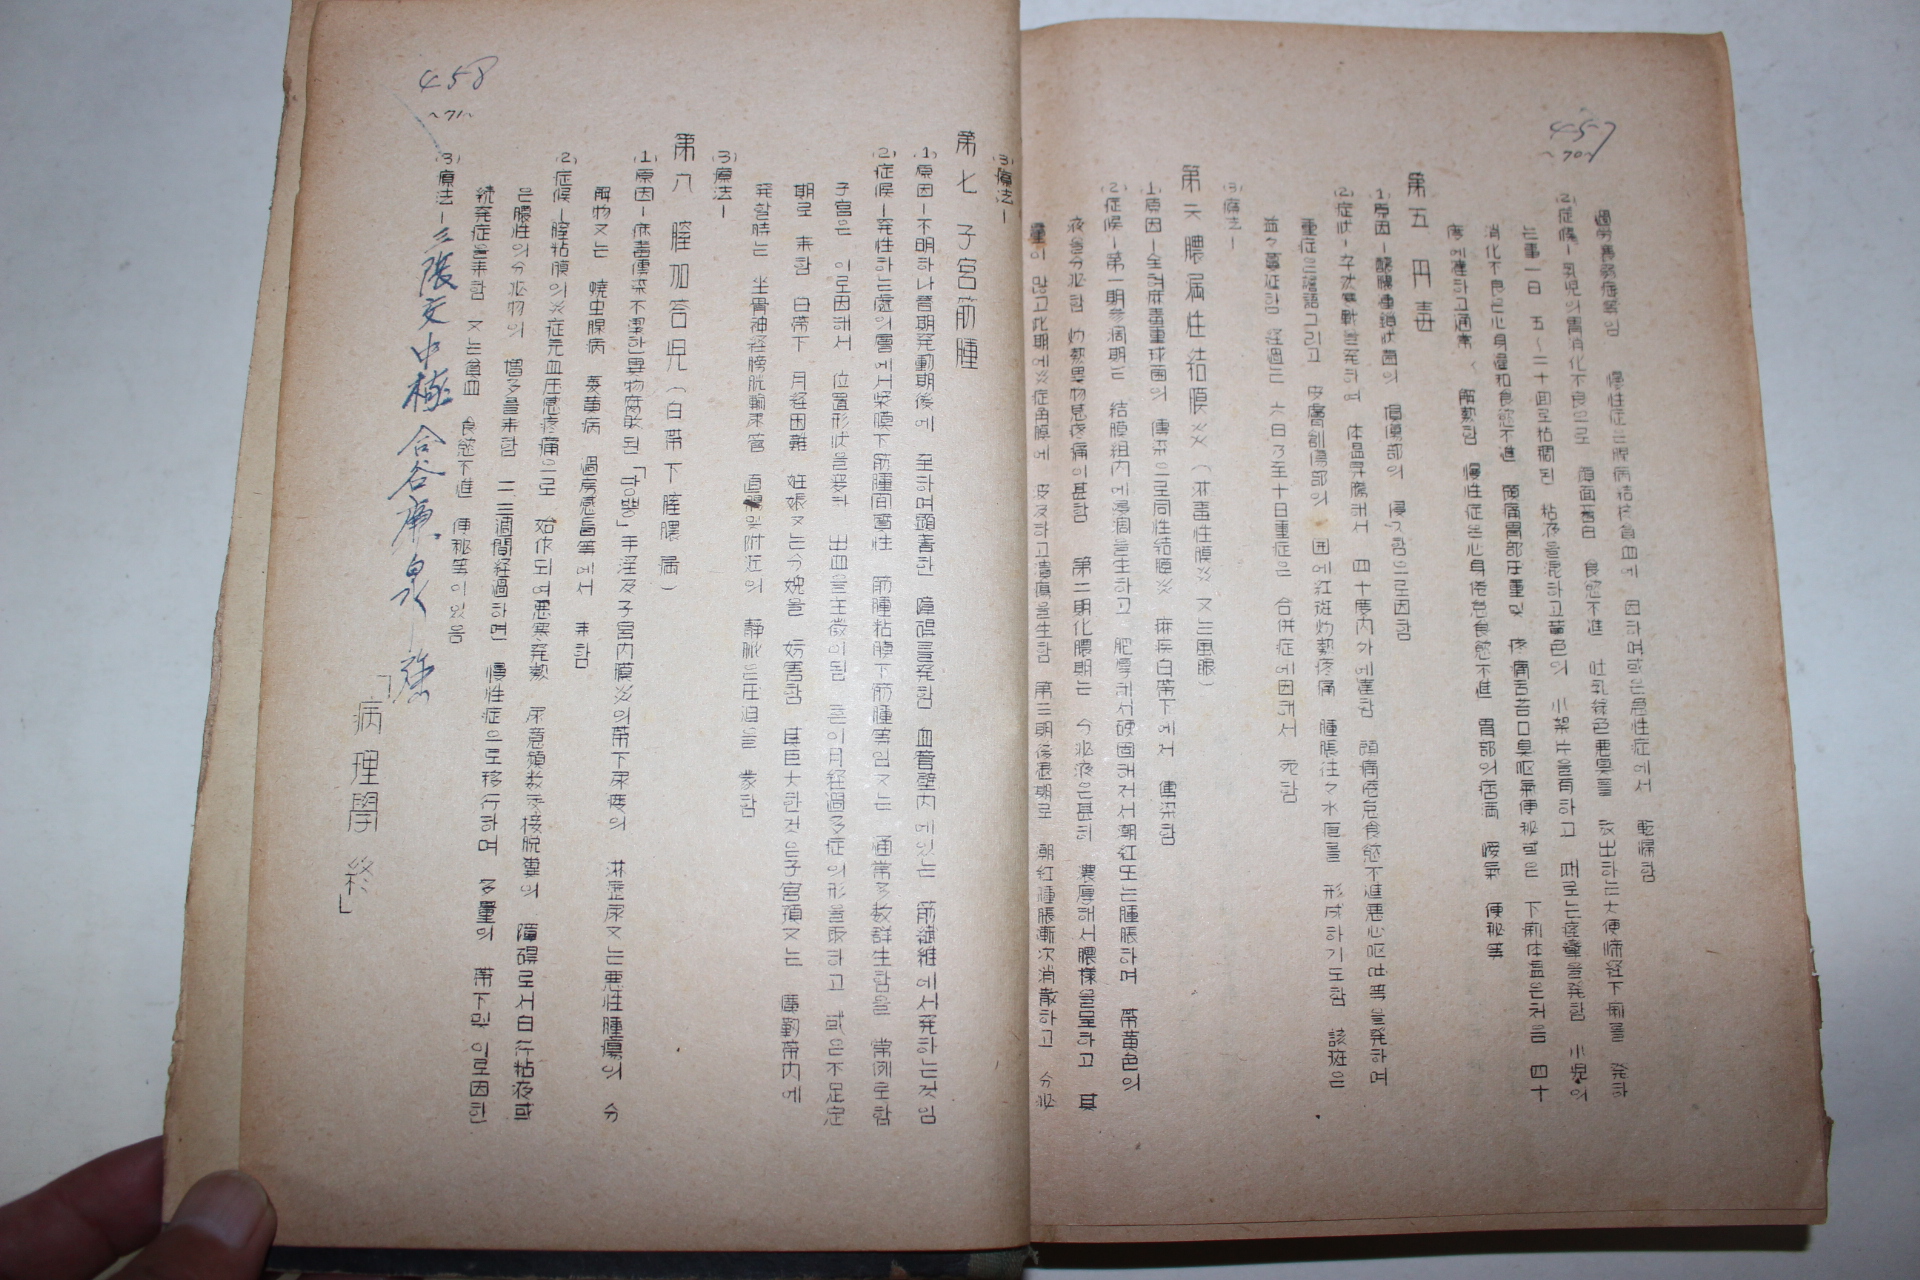 457
~70~
過勞衰弱症等임 慢性症은脾病結核貧血에 因하며或은急性症에서 転帰함
(2)症候-乳児의胃消化不良으로 顔面蒼白 食慾不進 吐乳綠色悪臭를 放出하는大便疝経下痢를 発하
는事一日 五~二十回로粘稠된 粘液을混하고黄色의 小絮片을有하고 때로는痙攣을発함 小児의
消化不良은心身違和食慾不進 頭痛胃部圧重및 疼痛舌苔口臭呕氣便秘或은 下痢体温은처음 四十
度에達하고通常 解熱함 慢性症은心身倦怠食慾不進 胃部의痞満 噯氣 便秘等
第五 丹毒
(1)原因-釀膿連鎖状菌의 損傷部의 侵入함으로因함
(2)症状-卒然寒戦을発하며 体温昇騰해서 四十度内外에達함 頭痛倦怠食慾不進悪心呕吐等을発하며
重症은譫語그리고 皮膚創傷部의 囲에紅斑灼熱疼痛 腫脹往々水疱를 形成하기도함 該斑은
益々蔓延함 経過는 六日乃至十日重症은 合併症에因해서 死함
(3)療法-
第六 膿漏性結膜炎(淋毒性膜炎又는風眼)
(1)原因-全혀麻毒重球菌의 傳染으로同性結膜炎 麻疾白帯下에서 傳染함
(2)症候-第一期参潤期는 結膜組内에浸潤을生하고 肥厚해서硬固해져서潮紅또는腫脹하며 帯黄色의
液을分泌함 灼熱異物感疼痛이甚함 第二期化膿期는 分泌液은甚히 濃厚해서膿様을呈하고 其
量이 많고此期에炎症角膜에 波及하고潰瘍을生함 第三期後退期로 潮紅腫脹漸次消散하고 分泌
458
~71~
(3)療法-
第七 子宮筋腫
(1)原因-不明하나春期発動期後에 至하며顕著한 障碍를発함 血管壁内에있는 筋纖維에서発하는것임
(2)症候-発性하는處의層에서漿膜下筋腫間質性 筋腫粘膜下筋腫等임又는 通常多数群生함을 常例로함
子宮은 이로因해서 位置形状을変하 出血을主徴이됨 혼이月経過多症의形을取하고 或은不足定
期로 来함 白帯下 月経困難 妊娠又는分娩을 妨害함 其巨大한것은子宮頚又는 廣靭帯内에
発할時는 坐骨神経膀胱輸尿管 直腸및附近의 静脈은圧迫을 蒙함
(3)療法-
第八 膣加答児(白帯下膣膿漏)
(1)原因-病毒傳染不潔한異物腐敗된「땅뽕」手淫及子宮内膜炎의帯下尿瘻의 淋歴尿又는悪性腫瘍의 分
解物又는 蟯虫腺病 萎黄病 過房感冒等에서 来함
(2)症候-膣粘膜의炎症充血圧感疼痛으로 始作되며悪寒発熱 尿意頻数交接脱糞의 障碍로서白行粘液或
은膿性의分泌物의 増多를来함 二三週間経過하면 慢性症으로移行하며 多量의 帯下및이로因한
続発症을来함 又는貧血 食慾不進 便秘等이있음
(3)療法-三陰交中極合谷廉泉
「病理學 終」